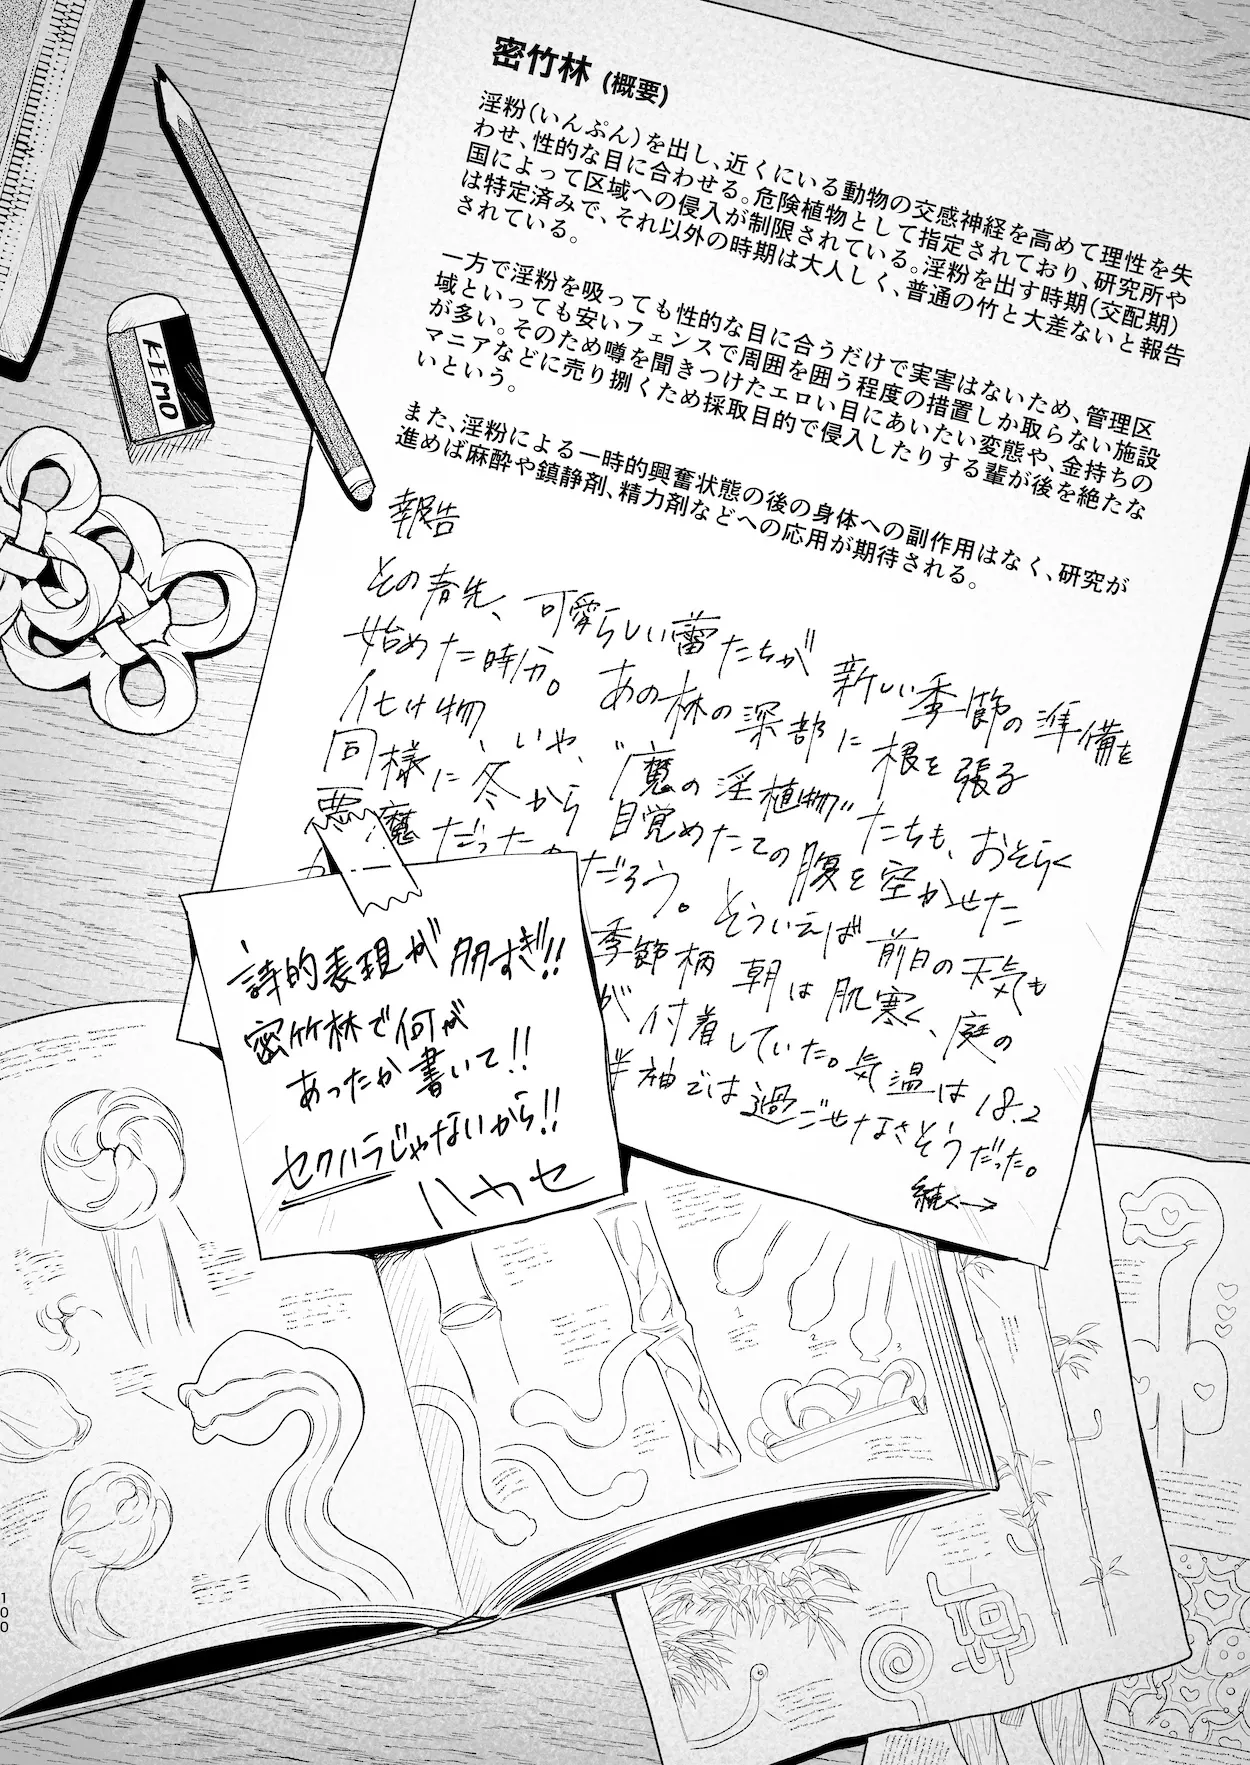 密竹林 (概要)
淫粉(いんぷん)を出し、近くにいる動物の交感神経を高めて理性を失
わせ、性的な目に合わせる。危険植物として指定されており、研究所や
国によって区域への侵入が制限されている。淫粉を出す時期(交配期)
は特定済みで、それ以外の時期は大人しく、普通の竹と大差ないと報告
されている。
一方で淫粉を吸っても性的な目に合うだけで実害はないため、管理区
域といっても安いフェンスで周囲を囲う程度の措置しか取らない施設
が多い。そのため噂を聞きつけたエロい目にあいたい変態や、金持ちの
マニアなどに売り捌くため採取目的で侵入したりする輩が後を絶たな
いという。
また、淫粉による一時的興奮状態の後の身体への副作用はなく、研究が
進めば麻酔や鎮静剤、精力剤などへの応用が期待される。
報告
その春先、可愛らしい蕾たちが新しい季節の準備を
始めた時分。あの林の深部に根を張る
化け物、いや、"魔の淫植物"たちも、おそらく
同様に冬から目覚めたての腹を空かせた
悪魔だったのだろう。そういえば前日の天気も
季節柄 朝は肌寒く、庭の
が付着していた。気温は18.2
半袖では過ごせなさそうだった。
続く→
詩的表現が多すぎ!!
密竹林で何が
あったか書いて!!
セクハラじゃないから!!
ハカセ
KEMO
1
2
3
100